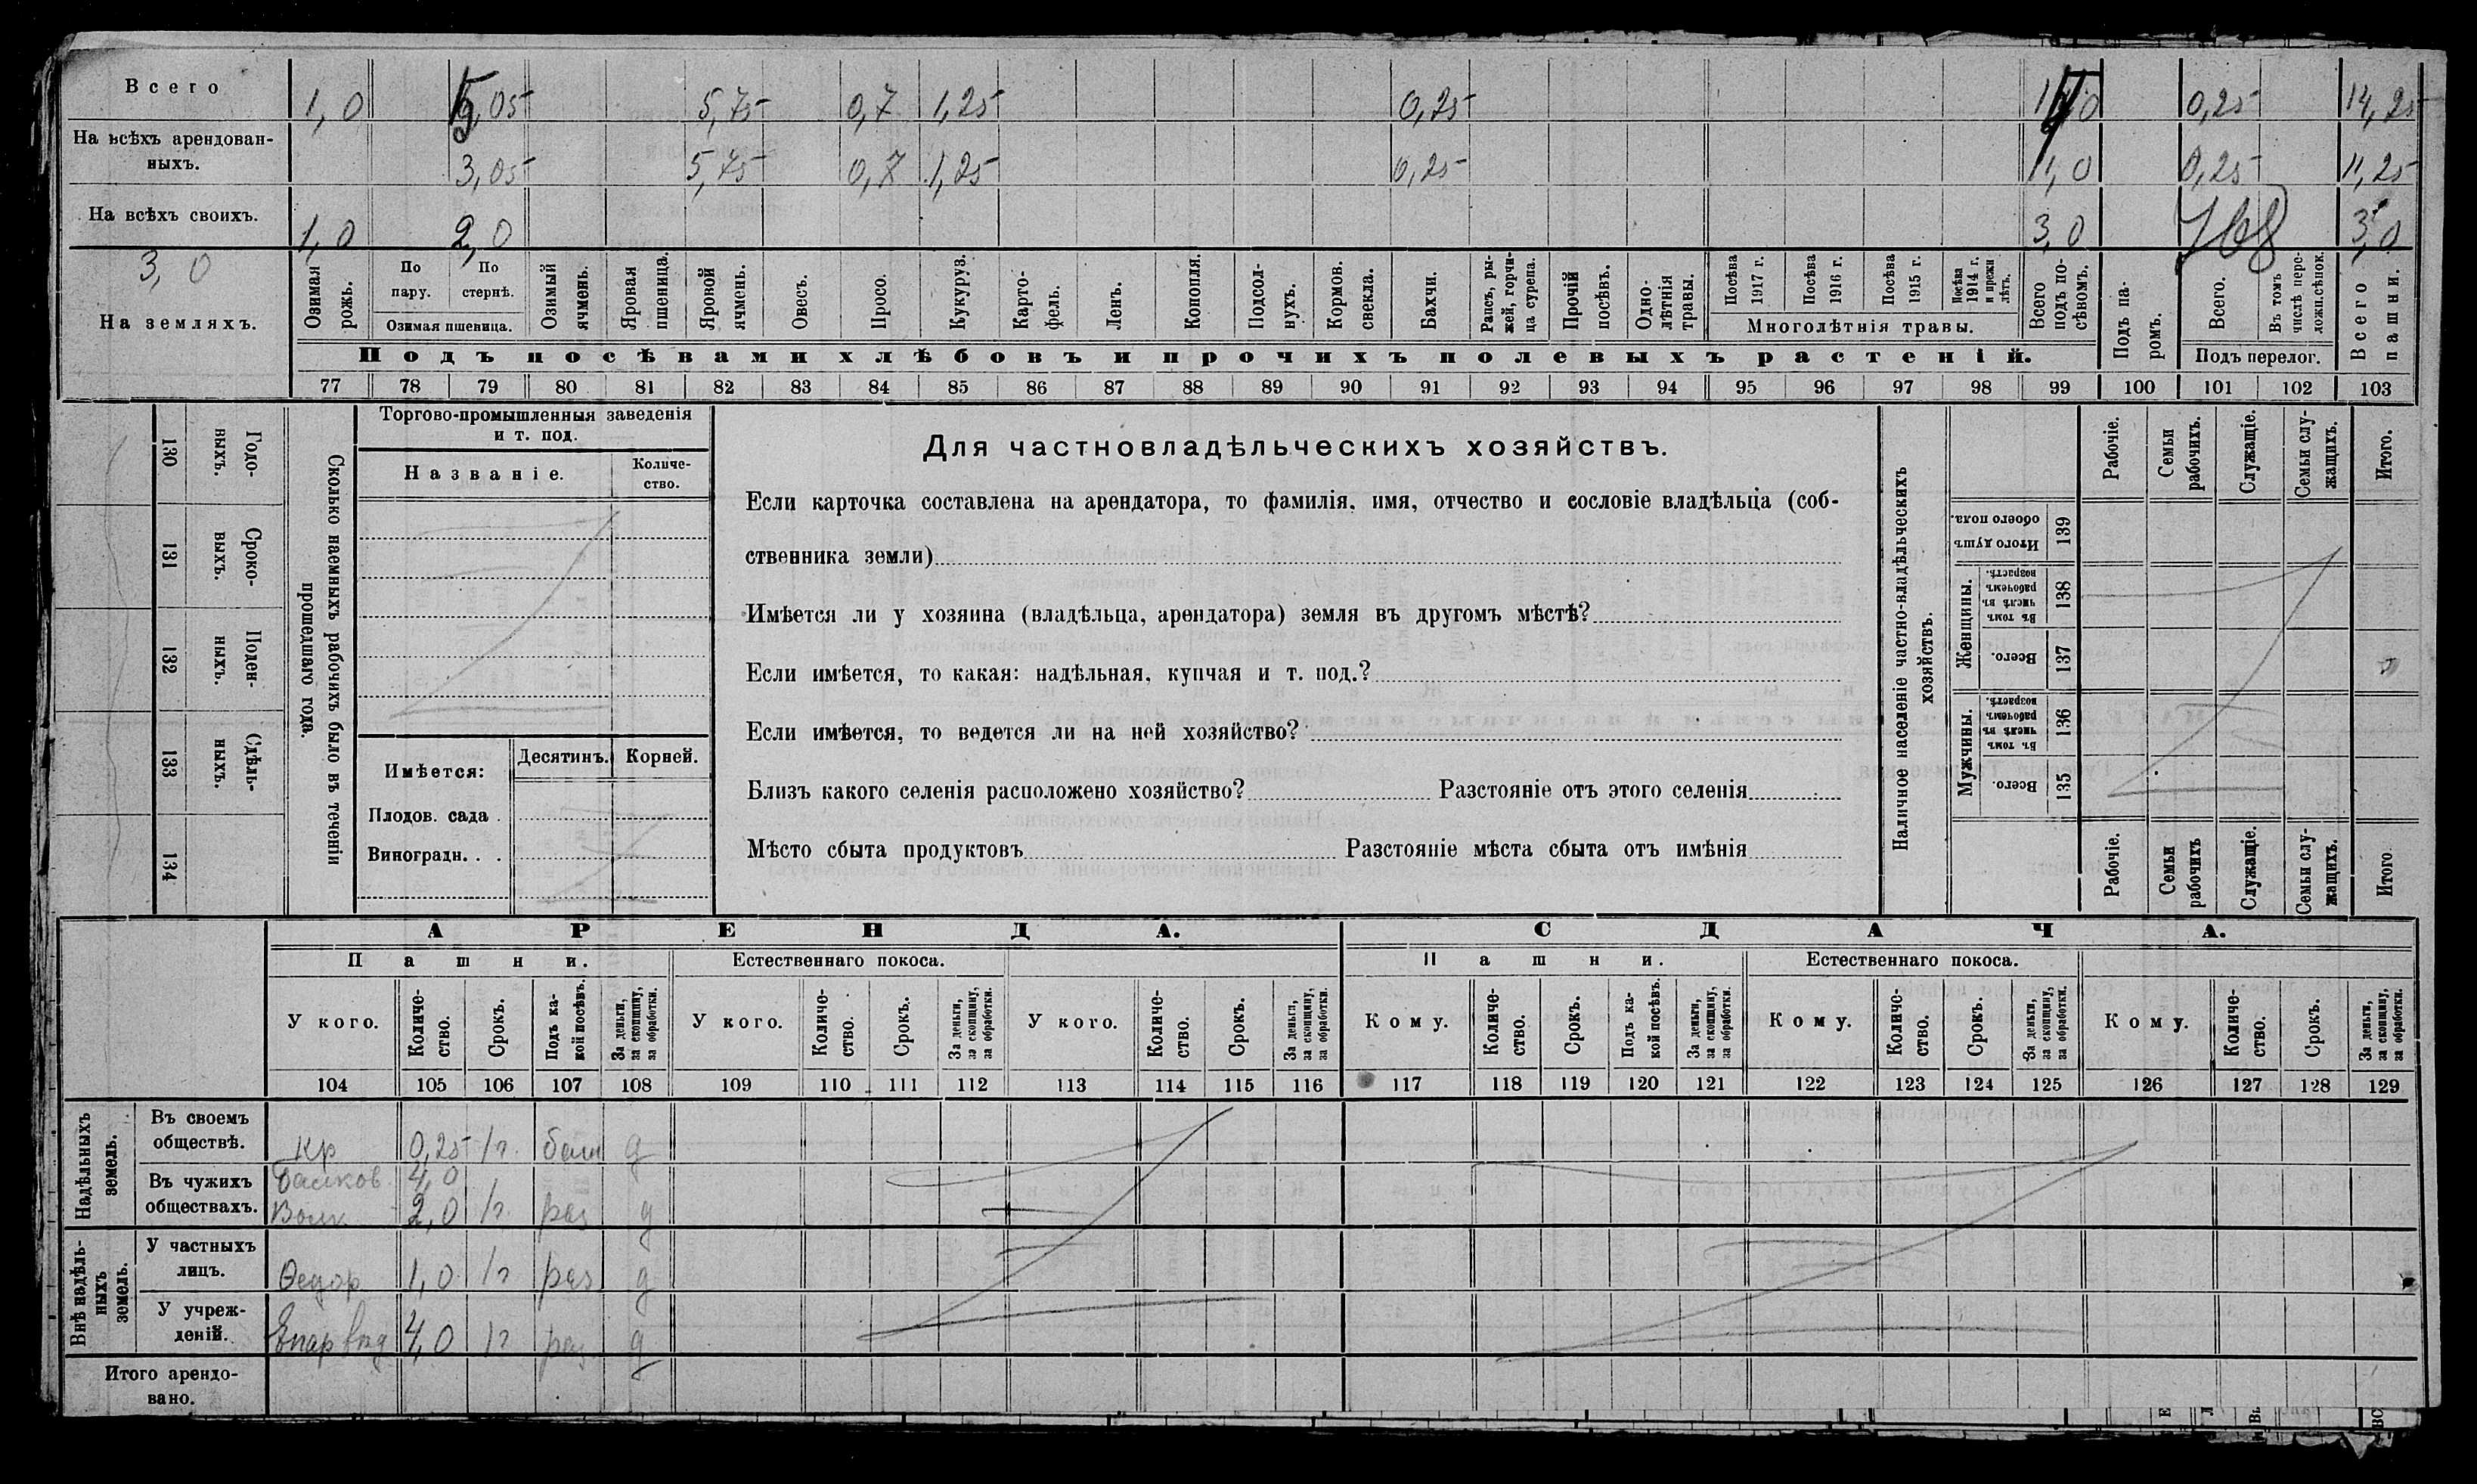 Всего 1,0 5,05 5,75 0,7 1,25 0,25 0,25 14,25
На всѣхъ арендован-
ныхъ. 3,05 5,75 0,7 1,25 0,25 11,0 0,25 11,25
На всѣхъ своихъ. 1,0 2,0 3,0 3,0
3,0
На земляхъ.
Озимая рожь.
По пару.
По стернѣ.
Озимая пшеница.
Озимый ячмень.
Яровая пшеница.
Яровой ячмень.
Овесъ.
Просо.
Кукуруз.
Карто-
фель.
Ленъ.
Конопля.
Подсол-
нухъ.
Кормов.
свекла.
Бахчи.
Рапсъ, ры-
жей, горчи-
ца сурепа.
Прочій
посѣвъ.
Одно-
лѣтнія
травы.
Посѣва
1917 г.
Посѣва
1916 г.
Посѣва
1915 г.
Посѣва
1914 г.
и прежн
лѣтъ.
Многолѣтнія травы.
Всего
подъ по-
сѣвомъ.
Подъ па-
ромъ.
Всего.
Въ томъ
числѣ пере-
ложн.сѣнок.
Подъ перелог.
Всего
пашни.
Подъ посѣвами хлѣбовъ и прочихъ полевыхъ растеній.
77 78 79 80 81 82 83 84 85 86 87 88 89 90 91 92 93 94 95 96 97 98 99 100 101 102 103
Годо-
выхъ.
130
Сроко-
выхъ.
131
Поден-
ныхъ.
132
Сдѣль-
ныхъ.
133
134
Сколько наемныхъ рабочихъ было въ теченіи
прошедшаго года.
Торгово-промышленныя заведенія
и т. под.
Названіе.
Количе-
ство.
Имѣется:
Десятинъ. Корней.
Плодов. сада .
Виноградн. . .
Для частновладѣльческихъ хозяйствъ.
Если карточка составлена на арендатора, то фамилія, имя, отчество и сословіе владѣльца (соб-
ственника земли)
Имѣется ли у хозяина (владѣльца, арендатора) земля въ другомъ мѣстѣ?
Если имѣется, то какая: надѣльная, купчая и т. под.?
Если имѣется, то ведется ли на ней хозяйство?
Близъ какого селенія расположено хозяйство? Разстояніе отъ этого селенія
Мѣсто сбыта продуктовъ Разстояніе мѣста сбыта отъ имѣнія
Наличное населеніе частно-владѣльческихъ
хозяйствъ.
Рабочіе.
Семьи
рабочихъ.
Служащіе.
Семьи слу-
жащихъ.
Итого.
Итого душъ
обоего пола.
139
Женщины.
Въ томъ
числѣ въ
рабочемъ
возрастѣ.
138
Всего.
137
Мужчины.
Въ томъ
числѣ въ
рабочемъ
возрастѣ.
136
Всего.
135
Рабочіе.
Семьи
рабочихъ
Служащіе.
Семьи слу-
жащихъ.
Итого
АРЕНДА. СДАЧА.
Пашни. Естественнаго покоса. Пашни. Естественнаго покоса.
У кого.
Количе-
ство.
Срокъ.
Подъ ка-
кой посѣвъ.
За деньги,
за скопщину,
за обработки.
У кого.
Количе-
ство.
Срокъ.
За деньги,
за скопщину,
за обработки.
У кого.
Количе-
ство.
Срокъ.
За деньги,
за скопщину,
за обработки.
Кому.
Количе-
ство.
Срокъ.
Подъ ка-
кой посѣвъ.
За деньги,
за скопщину,
за обработки.
Кому.
Количе-
ство.
Срокъ.
За деньги,
за скопщину,
за обработки.
Кому.
Количе-
ство.
Срокъ.
За деньги,
за скопщину,
за обработки.
104 105 106 107 108 109 110 111 112 113 114 115 116 117 118 119 120 121 122 123 124 125 126 127 128 129
Надѣльныхъ
земель.
Въ своемъ
обществѣ. Кр 0,25 1 г. баш д
Въ чужихъ 4,0
обществахъ. 2,0 1 г. раз д
Внѣ надѣль-
ныхъ
земель.
У частныхъ
лицъ. Ѳедор 1,0 1 г раз д
У учреж-
деній. 4,0 1 г раз д
Итого арендо-
вано.